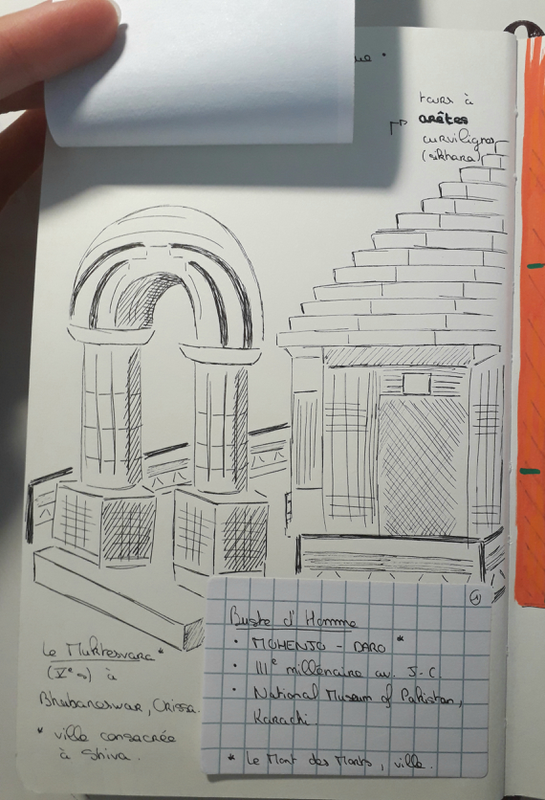 tours à
arêtes
curvilignes
(sikhara)
Le Muktesvara*
(Xᵉ s) à
Bhubaneswar, Orissa.
* ville consacrée
à Shiva.
1
Buste d'Homme
• MOHENJO - DARO *
• IIIᵉ millénaire av. J-C
• National Museum of Pakistan,
Karachi
* Le Mont des Morts, ville.